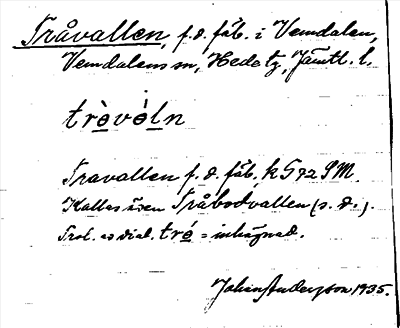 Tråvallen, f.d. fäb. i Vemdalen,
Vemdalens sn, Hede tg, Jämtl. l.
trèvéln
Travallen f.d. fäb. k 572 SM.
Kallas även Tråbodvallen (s.d.).
Trol. av dial. tré = inhägnad.
Johan Anderson 1935.